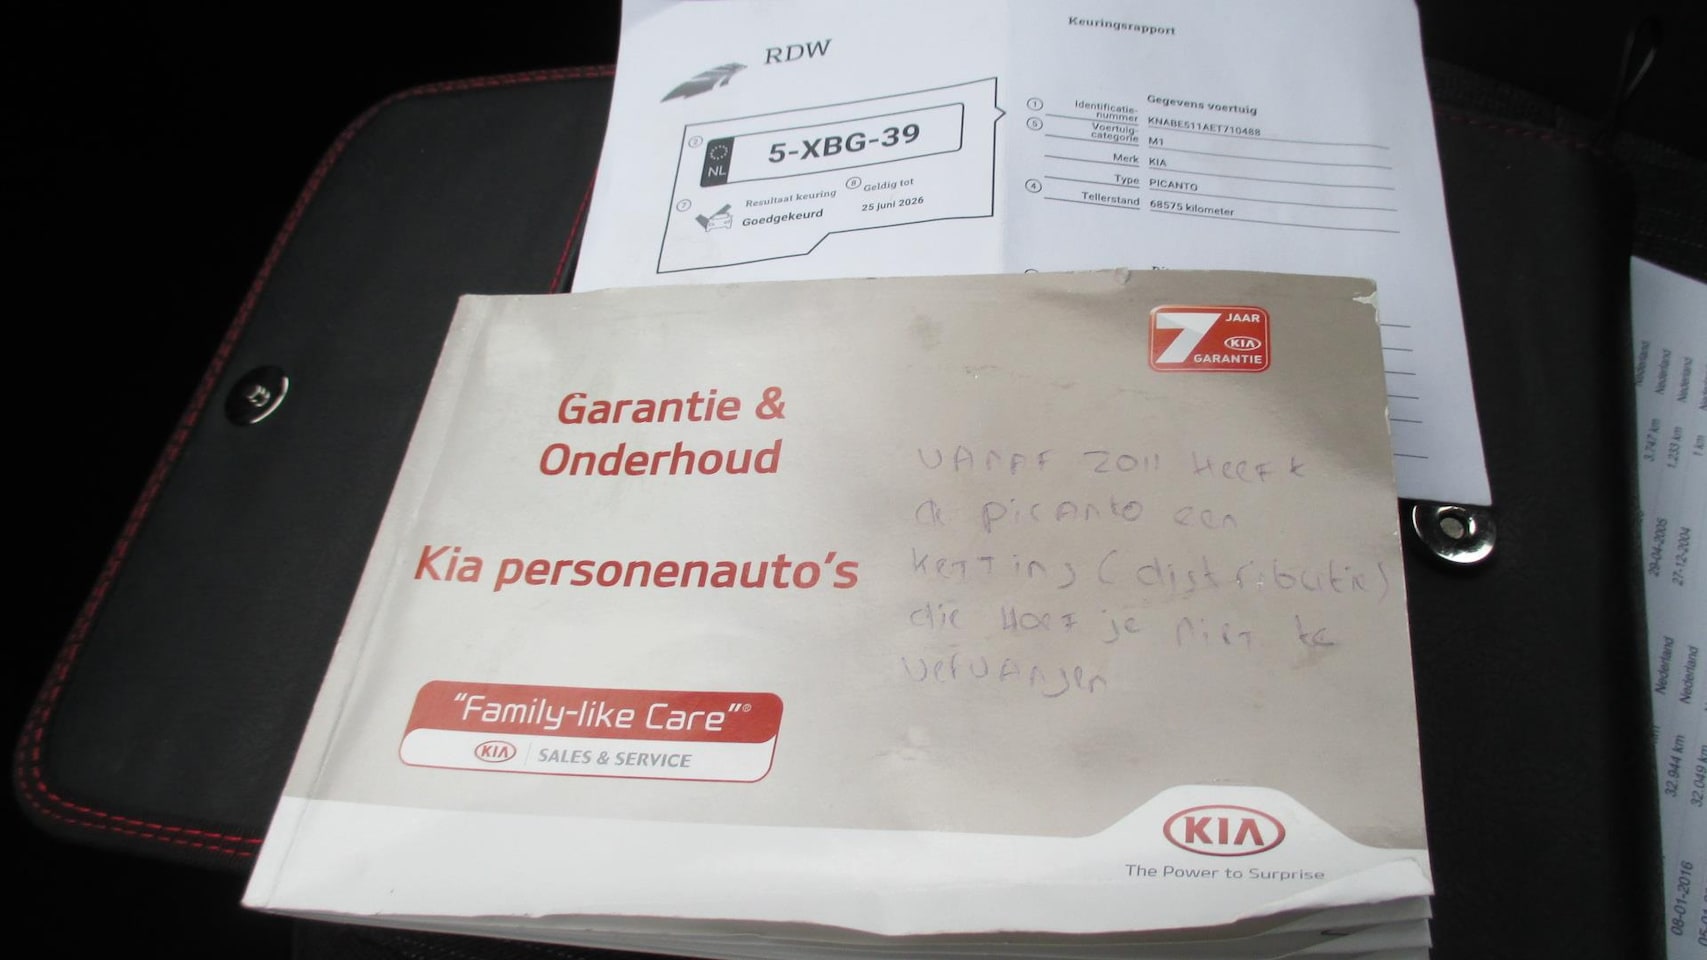 RDW
5-XBG-39
NL
Resultaat keuring
Goedgekeurd
Geldig tot
25 juni 2026
Keuringsrapport
Gegevens voertuig
Identificatie-
nummer KNABE511AET710488
Voertuig-
categorie M1
Merk KIA
Type PICANTO
Tellerstand 68575 kilometer
7 JAAR
KIA
GARANTIE
Garantie &
Onderhoud
Kia personenauto's
VANAF 2011 HEEFt
de picanto een
KETTING (distributie)
die HOEF je NIET te
vervangen
"Family-like Care"®
KIA SALES & SERVICE
KIA
The Power to Surprise
Nederland
Nederland
3.747 km
1.233 km
1 km
29-04-2005
27-12-2004
Nederland
Nederland
32.944 km
32.049 km
08-01-2016